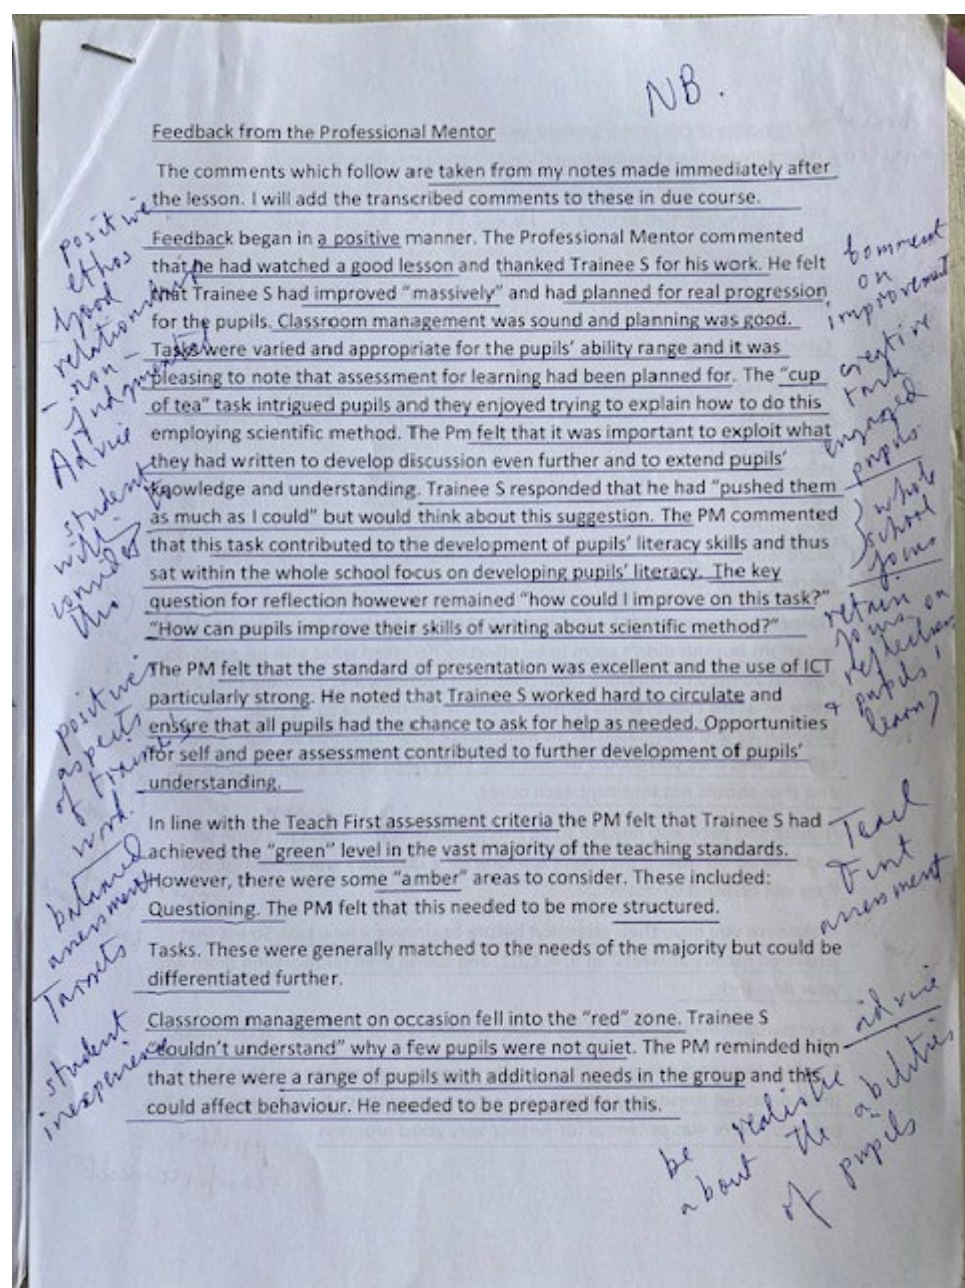 NB.
Feedback from the Professional Mentor
The comments which follow are taken from my notes made immediately after
the lesson. I will add the transcribed comments to these in due course.
Feedback began in a positive manner. The Professional Mentor commented
that he had watched a good lesson and thanked Trainee S for his work. He felt
that Trainee S had improved “massively” and had planned for real progression
for the pupils. Classroom management was sound and planning was good.
Tasks were varied and appropriate for the pupils’ ability range and it was
pleasing to note that assessment for learning had been planned for. The “cup
of tea” task intrigued pupils and they enjoyed trying to explain how to do this
employing scientific method. The Pm felt that it was important to exploit what
they had written to develop discussion even further and to extend pupils’
knowledge and understanding. Trainee S responded that he had “pushed them
as much as I could” but would think about this suggestion. The PM commented
that this task contributed to the development of pupils’ literacy skills and thus
sat within the whole school focus on developing pupils’ literacy. The key
question for reflection however remained “how could I improve on this task?”
“How can pupils improve their skills of writing about scientific method?”
The PM felt that the standard of presentation was excellent and the use of ICT
particularly strong. He noted that Trainee S worked hard to circulate and
ensure that all pupils had the chance to ask for help as needed. Opportunities
for self and peer assessment contributed to further development of pupils’
understanding.
In line with the Teach First assessment criteria the PM felt that Trainee S had
achieved the “green” level in the vast majority of the teaching standards.
However, there were some “amber” areas to consider. These included:
Questioning. The PM felt that this needed to be more structured.
Tasks. These were generally matched to the needs of the majority but could be
differentiated further.
Classroom management on occasion fell into the “red” zone. Trainee S
“couldn’t understand” why a few pupils were not quiet. The PM reminded him
that there were a range of pupils with additional needs in the group and this
could affect behaviour. He needed to be prepared for this.
positive
ethos
Good
relationship
- non-
judgmental
Advice
student
will
consider
this
positive
aspects
of trainee's
work.
balanced
assessment
Targets
student
inexperience
Comment
on
improvement
creative
task
engaged
pupils.
whole
school
focus
retain
focus on
reflection
+ pupils'
learn)
Teach
First
assessment
advice
be realistic
about the abilities
of pupils